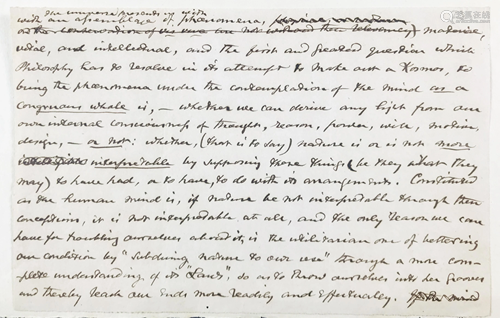 The universe presents us with
with an assemblage of phænomena,
material,
vital, and intellectual, and the first and greatest question which
Philosophy has to resolve in its attempt to make out a Kosmos, to
bring the phænomena under the contemplation of the mind as a
congruous whole is, — whether we can derive any light from our
own internal consciousness of thought, reason, power, will, motive,
design, — or not: whether, (that is to say) nature is or is not more
interpretable by supposing those things (be they what they
may) to have had, or to have, to do with its arrangements. Constituted
as the human mind is, if nature be not interpretable through these
conceptions, it is not interpretable at all, and the only reason we can
have for troubling ourselves about it, is the utilitarian one of bettering
our condition by "subduing nature to our use" through a more com-
plete understanding of its "Laws", so as to throw ourselves into her grooves
and thereby reach our ends more readily and effectually.